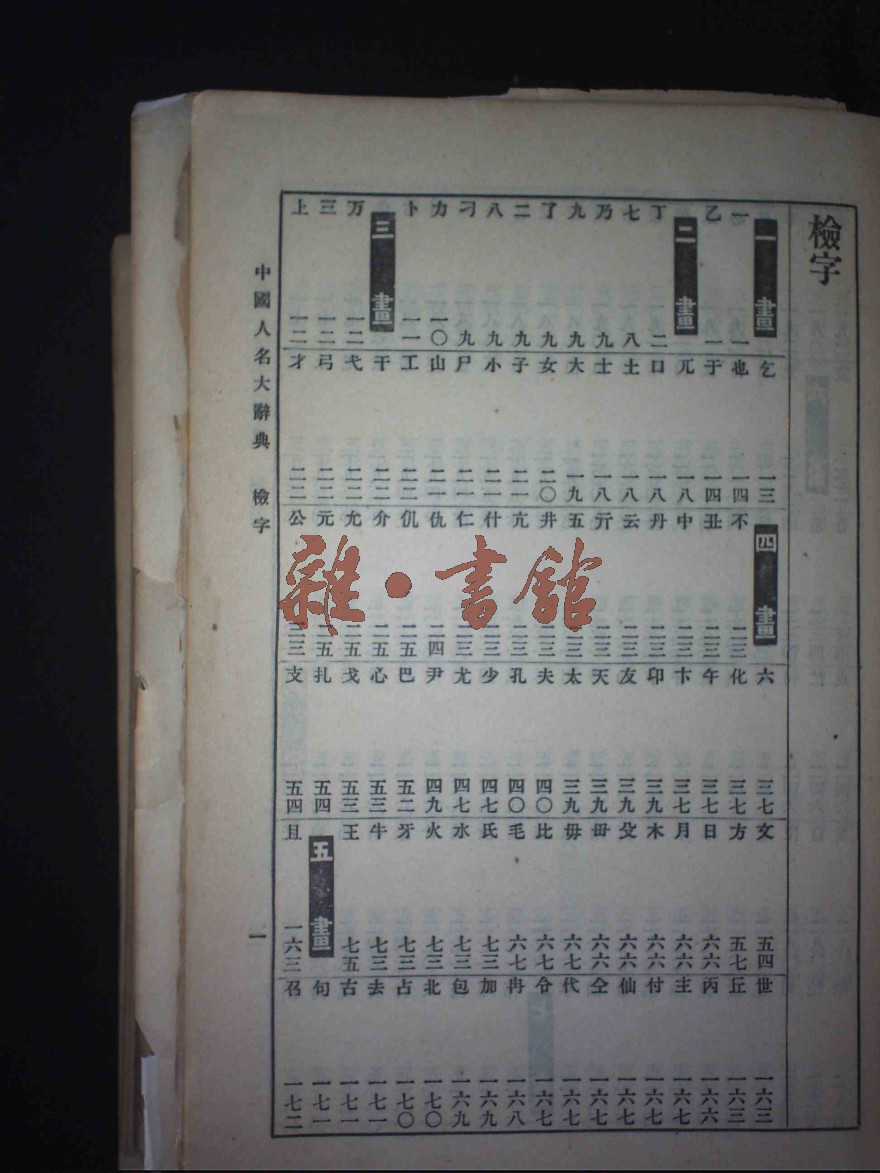 檢字
一畫
一 一
乙 一
二畫
丁 二
七 八
乃 九
九 九
了 九
二 九
八 九
刁 九
力 一〇
卜 一一
三畫
万 一二
三 一二
上 一二
乞 一三
也 一四
于 一四
兀 一八
口 一八
土 一八
士 一八
大 一九
女 二〇
子 二一
小 二一
尸 二一
山 二一
工 二二
干 二二
弋 二二
弓 二二
才 二二
四畫
不 二三
丑 二三
中 二三
丹 二三
云 二三
亓 二三
五 二三
井 二三
亢 二三
什 二三
仁 二三
仇 二四
仉 二五
介 二五
允 二五
元 二五
公 三三
六 三七
化 三七
午 三七
卞 三七
卬 三九
友 三九
天 三九
太 三九
夫 四〇
孔 四〇
少 四七
尤 四七
尹 四九
巴 五二
心 五三
戈 五三
扎 五四
支 五四
文 五四
方 五七
日 六六
月 六六
木 六六
殳 六六
毌 六六
毋 六七
比 六七
毛 六七
氏 七三
水 七三
火 七三
牙 七三
牛 七三
王 七五
五畫
且 一六三
世 一六三
丘 一六三
丙 一六六
主 一六七
付 一六七
仙 一六七
仝 一六七
代 一六七
令 一六七
冉 一六八
加 一六九
包 一六九
北 一七〇
占 一七〇
去 一七一
古 一七一
句 一七一
召 一七二
中國人名大辭典 檢字
一
雜·書館